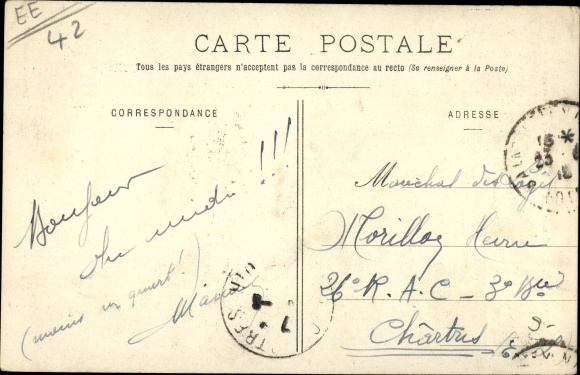 EE
42
CARTE POSTALE
Tous les pays étrangers n'acceptent pas la correspondance au recto (Se renseigner à la Poste)
CORRESPONDANCE
ADRESSE
Bonjour
du midi !!!
(moins un quart!)
Maréchal des Logis
Morilloz
26e R.A.C - 3e Bie
Chartres